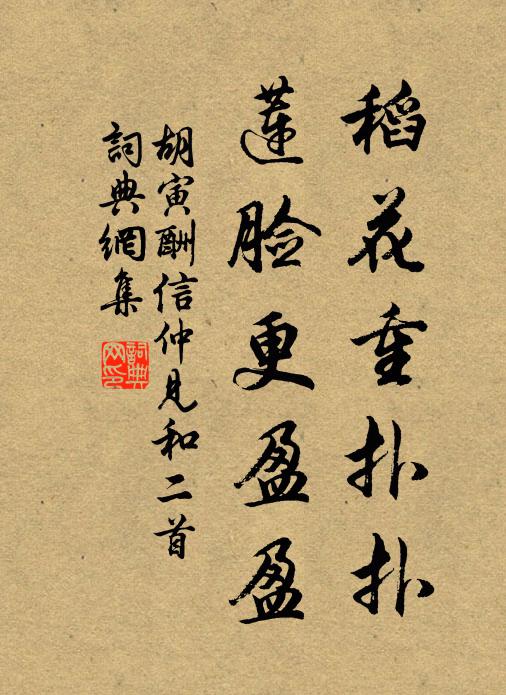 稻花重扑扑
莲脸更盈盈
胡寅酬信仲見和二首
詞典網集
詞典网印